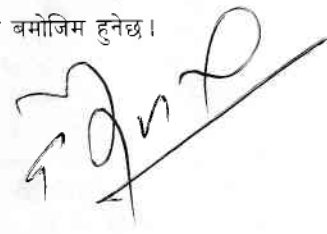 बमोजिम हुनेछ।